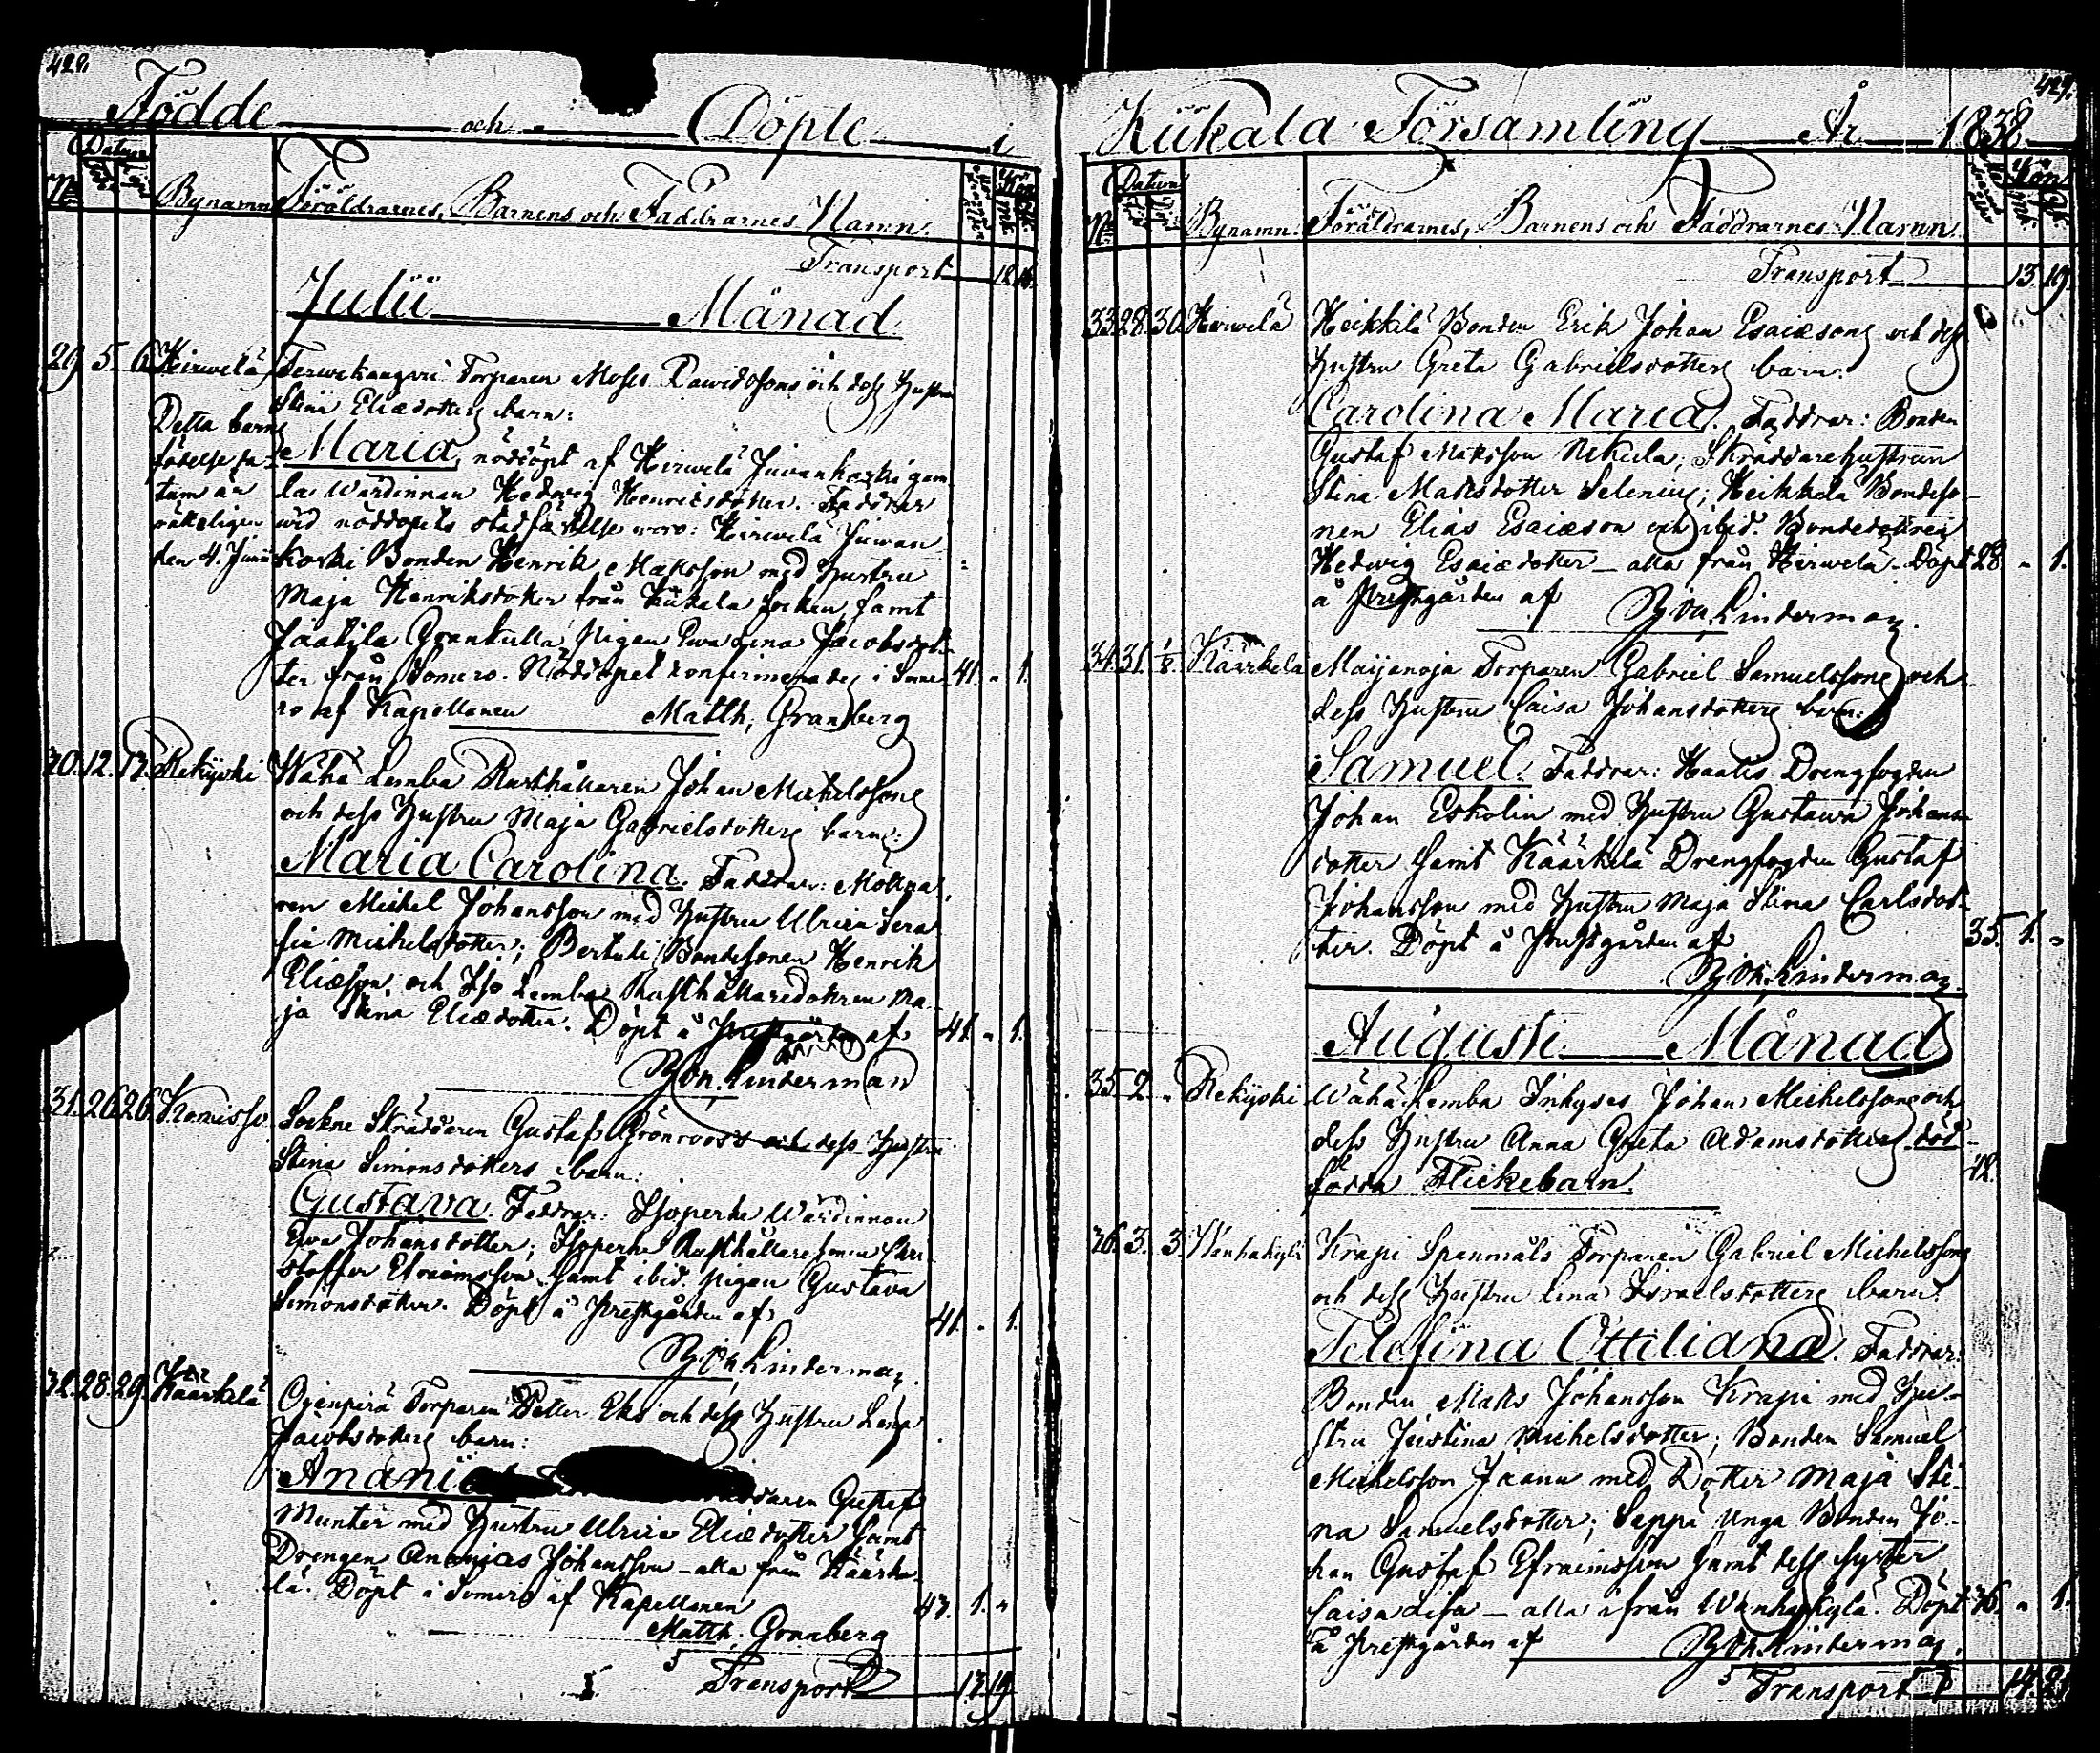 428.
Födde och Döpte i
Datum
No Bynamn Föräldrarnes, Barnens och Faddrarnes Namn.
Transport
Julii Månad
29 5. 6. Hirwelä Torparen Moses Davidssons och dess Hustru
Stina Eliædotters barn:
Maria, nöddöpt af Hirwelä Juwankoski gam-
la Wärdinnan Hedwig Henricsdotter. Faddrar
wid nöddopets stadfästelse woro: Hirwelä Juwan
koski Bonden Henrik Matsson med Hustru
Maja Henriksdotter från Kiikala Socken, samt
Jaatila Pigan Ewa Lina Jacobsdot-
ter från Somero. Nöddopet konfirmerades i Some- 41. " 1.
ro af Kapellanen Matth. Granberg
Detta barns
födelse da-
tum är
rätteligen
den 4. Junii
30. 12. 13. Rekijoki Wähä Lemba Rusthållaren Johan Michelssons
och dess Hustru Maja Gabrielsdotters barn:
Maria Carolina. Faddrar: Möllna-
ren Michel Johansson med Hustru Ulrica Sera
fia Michelsdotter; Bertuli Bondesonen Henrik
Eliæson, och Iso Lemba Rusthållaredottren Ma-
ja Stina Eliædotter. Döpt å Prestgården af 41. " 1.
Joh. Linderman
31. 26. 26. Komisuo Sockne Skräddaren Gustaf Grönroos's och dess Hustru
Stina Simonsdotters barn:
Gustava. Faddrar: Isoperhe Wärdinnan
Ewa Johansdotter; Isoperhe Rusthållaresonen Chri-
stoffer Efraimsson samt ibid. Pigan Gustava
Simonsdotter. Döpt å Prestgården af 41. " 1.
Joh. Linderman.
32. 28. 29. Käärkelä Ojanperä Torparen Petter Eks och dess Hustru Lena
Jacobsdotters barn:
Anani daren Gustaf
Munter med Hustru Ulrica Eliædotter samt
Drengen Ananias Johansson – alla från Käärke-
lä. Döpt i Somero af Kapellanen 43. 1. "
Matth. Granberg
Transport 13. 19.
429.
Kiikala Församling År 1838
Datum Kön
No Bynamn. Föräldrarnes, Barnens och Faddrarnes Namn.
Transport 13. 19.
33. 28. 30. Hirwelä Heikkilä Bonden Erik Johan Esaiæsons och dess
Hustru Greta Gabrielsdotters barn:
Carolina Maria. Faddrar: Bonden
Gustaf Matsson Uckula; Skräddarehustrun
Stina Matsdotter Selenius; Heikkilä Bondeso-
nen Elias Esaiæson och ibid. Bondedottren
Hedwig Esaiædotter – alla från Hirwelä. Döpt 28 " 1.
å Prestgården af Joh. Linderman.
34. 31. 1/8. Käärkelä Maijanoja Torparen Gabriel Samuelssons och
dess Hustru Caisa Johansdotters barn:
Samuel. Faddrar: Haalis Drengfogden
Johan Eskolin med Hustru Gustawa Johans-
dotter samt Käärkelä Drengfogden Gustaf
Johansson med Hustru Maja Stina Carlsdot-
ter. Döpt å Prestgården af 35. 1. "
Joh. Linderman.
Augusti Månad
35. 2. " Rekijoki Wähä Lemba Inhyses Johan Michelssons och
dess Hustru Anna Greta Adamsdotters död-
födda Flickebarn. 42.
36. 3. 3. Wanhakylä Krapi Spanmåls Torparen Gabriel Michelssons
och dess Hustru Lena Israelsdotters barn:
Telefina Ottiliana. Faddrar:
Bonden Mats Johansson Krapi med Hu-
stru Justina Michelsdotter; Bonden Samuel
Michelsson Jaanu med Dotter Maja Sti-
na Samuelsdotter; Seppä Unga Bonden Jo-
han Gustaf Efraimsson samt dess Syster
Caisa Lisa – alla ifrån Wanhakylä. Döpt 36. " 1.
å Prestgården af Joh. Linderman.
Transport 14. 21